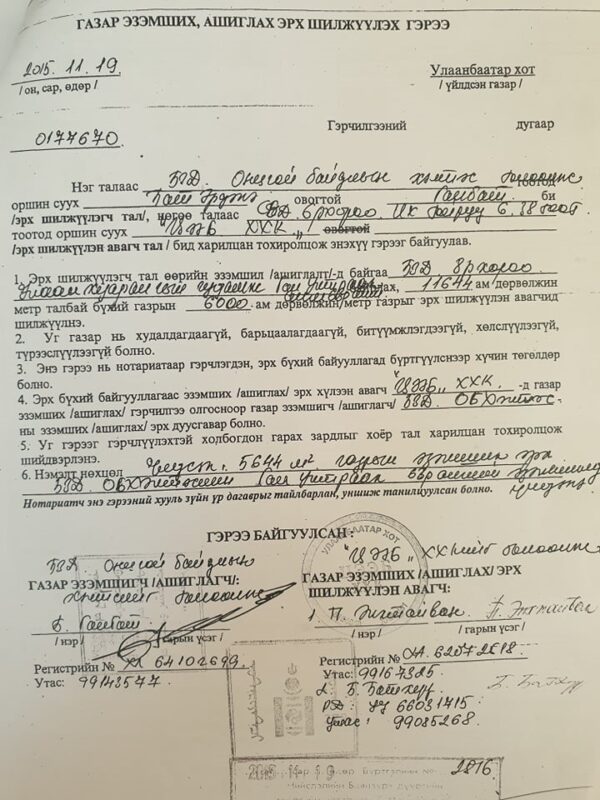 ГАЗАР ЭЗЭМШИХ, АШИГЛАХ ЭРХ ШИЛЖҮҮЛЭХ ГЭРЭЭ
2015. 11. 19. Улаанбаатар хот
/ он, сар, өдөр / / үйлдсэн газар /
Гэрчилгээний дугаар
0177670
Нэг талаас БЗД. Онцгой байдлын хэлтэс тоотод
оршин суух Бат-Эрдэнэ овогтой Ганбат би
/эрх шилжүүлэгч тал/, нөгөө талаас СБД. 6 хороо. Их тойруу 6.
тоотод оршин суух "ЦЭЭБ ХХК" / овогтой
/эрх шилжүүлэн авагч тал / бид харилцан тохиролцож энэхүү гэрээг байгуулав.
1. Эрх шилжүүлэгч тал өөрийн эзэмшил /ашиглалт/-д байгаа БЗД 8р хороо
11644 ам /дөрвөлжин
метр талбай бүхий газрын 6000 ам дөрвөлжин/метр газрыг эрх шилжүүлэн авагчид
шилжүүлнэ.
2. Уг газар нь худалдагдаагүй, барьцаалагдаагүй, битүүмжлэгдээгүй, хөлслүүлээгүй,
түрээслүүлээгүй болно.
3. Энэ гэрээ нь нотариатаар гэрчлэгдэн, эрх бүхий байгууллагад бүртгүүлснээр хүчин төгөлдөр
болно.
4. Эрх бүхий байгууллагаас эзэмших /ашиглах/ эрх хүлээн авагч "ЦЭЭБ" ХХК. -д газар
эзэмших /ашиглах/ гэрчилгээ олгосноор газар эзэмшигч /ашиглагч/ БЗД. ОБХэлтэс-
ны эзэмших /ашиглах/ эрх дуусгавар болно.
5. Уг гэрээг гэрчлүүлэхтэй холбогдон гарах зардлыг хоёр тал харилцан тохиролцож
шийдвэрлэнэ.
6. Нэмэлт нөхцөл Үлдсэн 5644 м² газрын эзэмших эрх
БЗД. ОБХэлтэсийн
Нотариатч энэ гэрээний хууль зүйн үр дагаврыг тайлбарлан, уншиж танилцуулсан болно.
ГЭРЭЭ БАЙГУУЛСАН :
УЛААНБААТАР ХОТ
БЗД Онцгой байдлын "ЦЭЭБ" ХХКийг төлөөлж
ГАЗАР ЭЗЭМШИГЧ /АШИГЛАГЧ/: ГАЗАР ЭЗЭМШИХ /АШИГЛАХ/ ЭРХ
Хэлтсийг төлөөлж ШИЛЖҮҮЛЭН АВАГЧ:
Б. Ганбат 1. П. Энхтайван П. Энхтайван
/ нэр / / гарын үсэг / / нэр / / гарын үсэг /
Регистрийн № 64102699 Регистрийн № 62072618
Утас: 99143577 Утас: 99167325
2. Б. Батхүү Б. Батхүү
РД: 66031715
Утас: 99085268
2015 11 19 Бүртгэлийн № 2816
Нийслэлийн дүүргийн